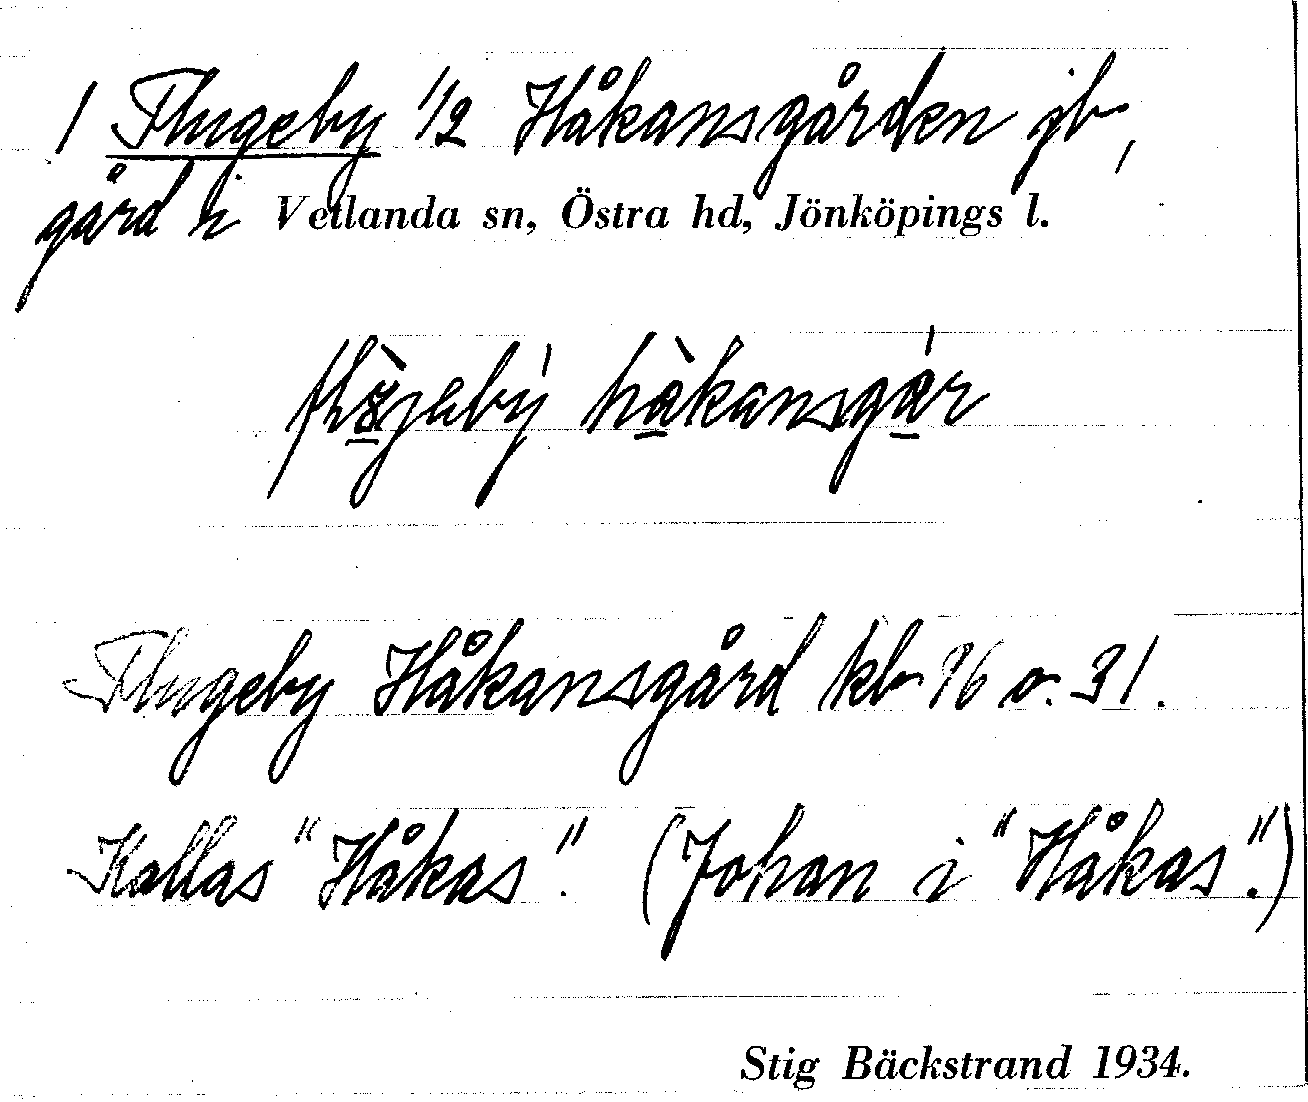 1 Flugeby 1/2 Håkansgården jb,
gård i Vetlanda sn, Östra hd, Jönköpings l.
håkansgår
Flugeby Håkansgård kb 96 o. 31.
Kallas "Håkas". (Johan i "Håkas".)
Stig Bäckstrand 1934.